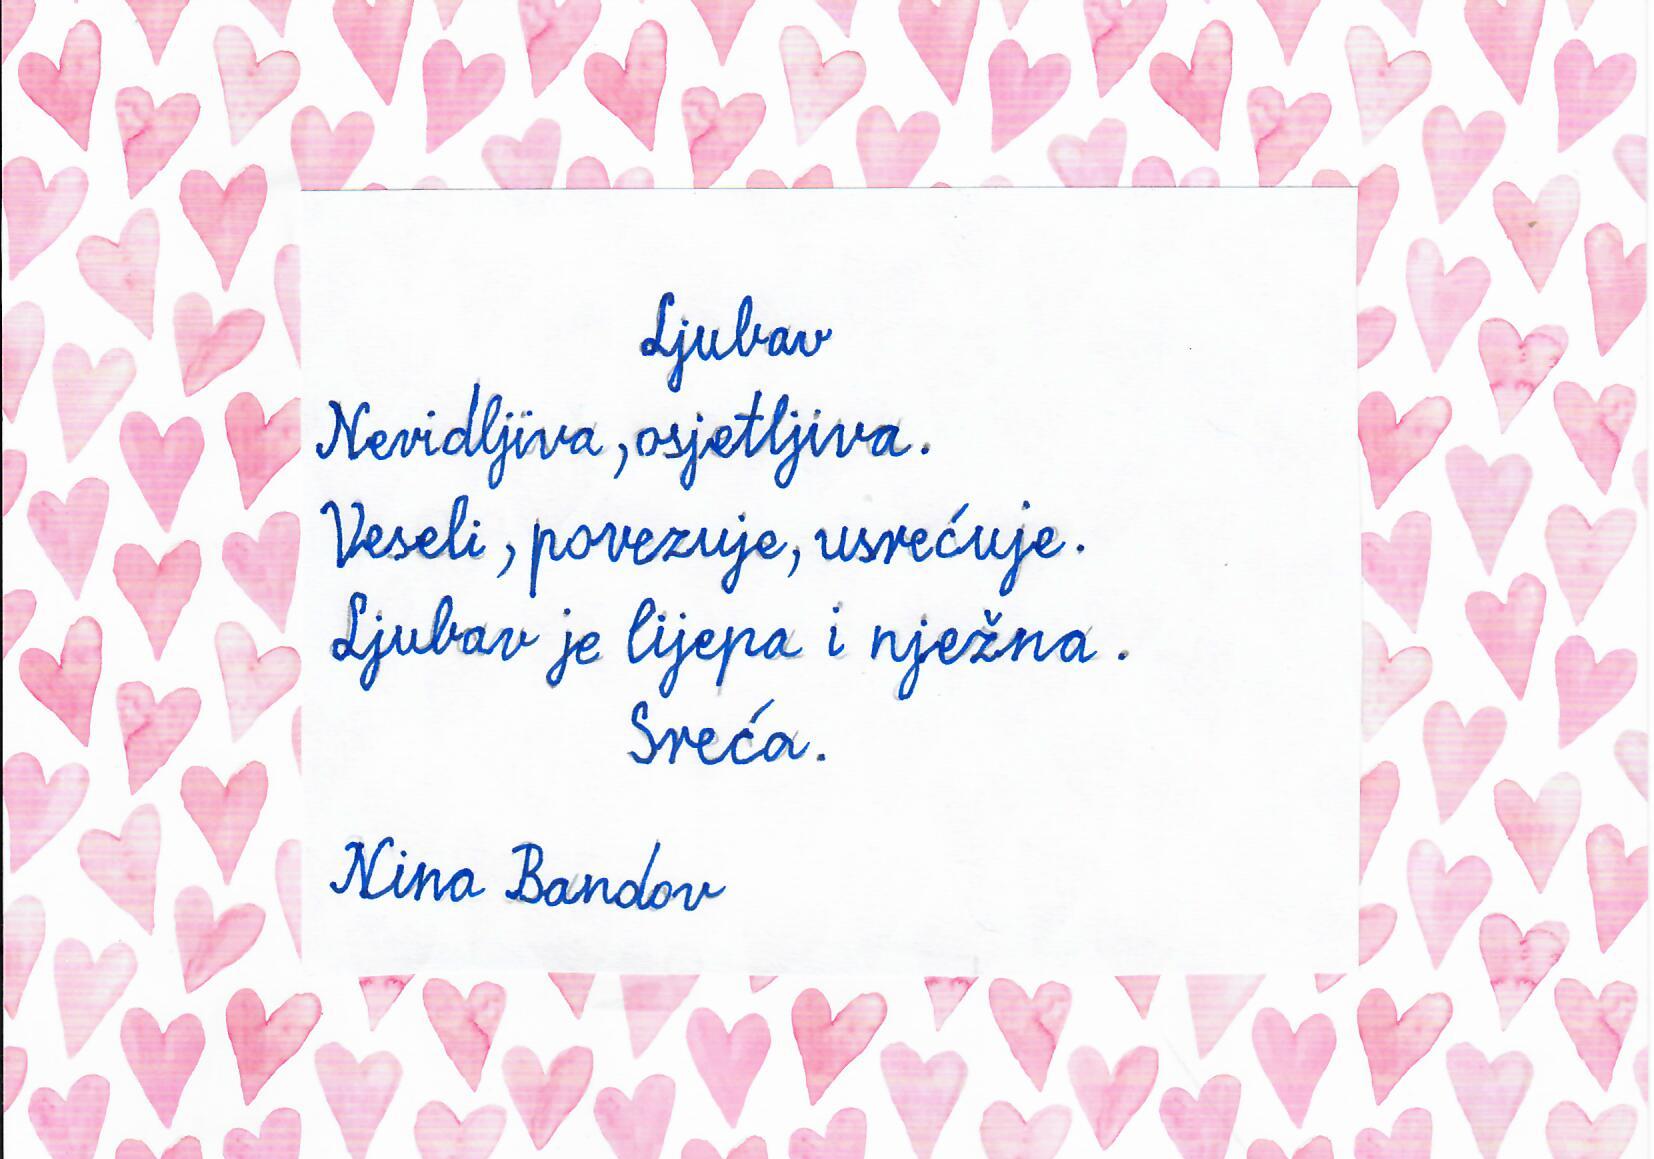 Ljubav
Nevidljiva, osjetljiva.
Veseli, povezuje, usrećuje.
Ljubav je lijepa i nježna.
Sreća.
Nina Bandov